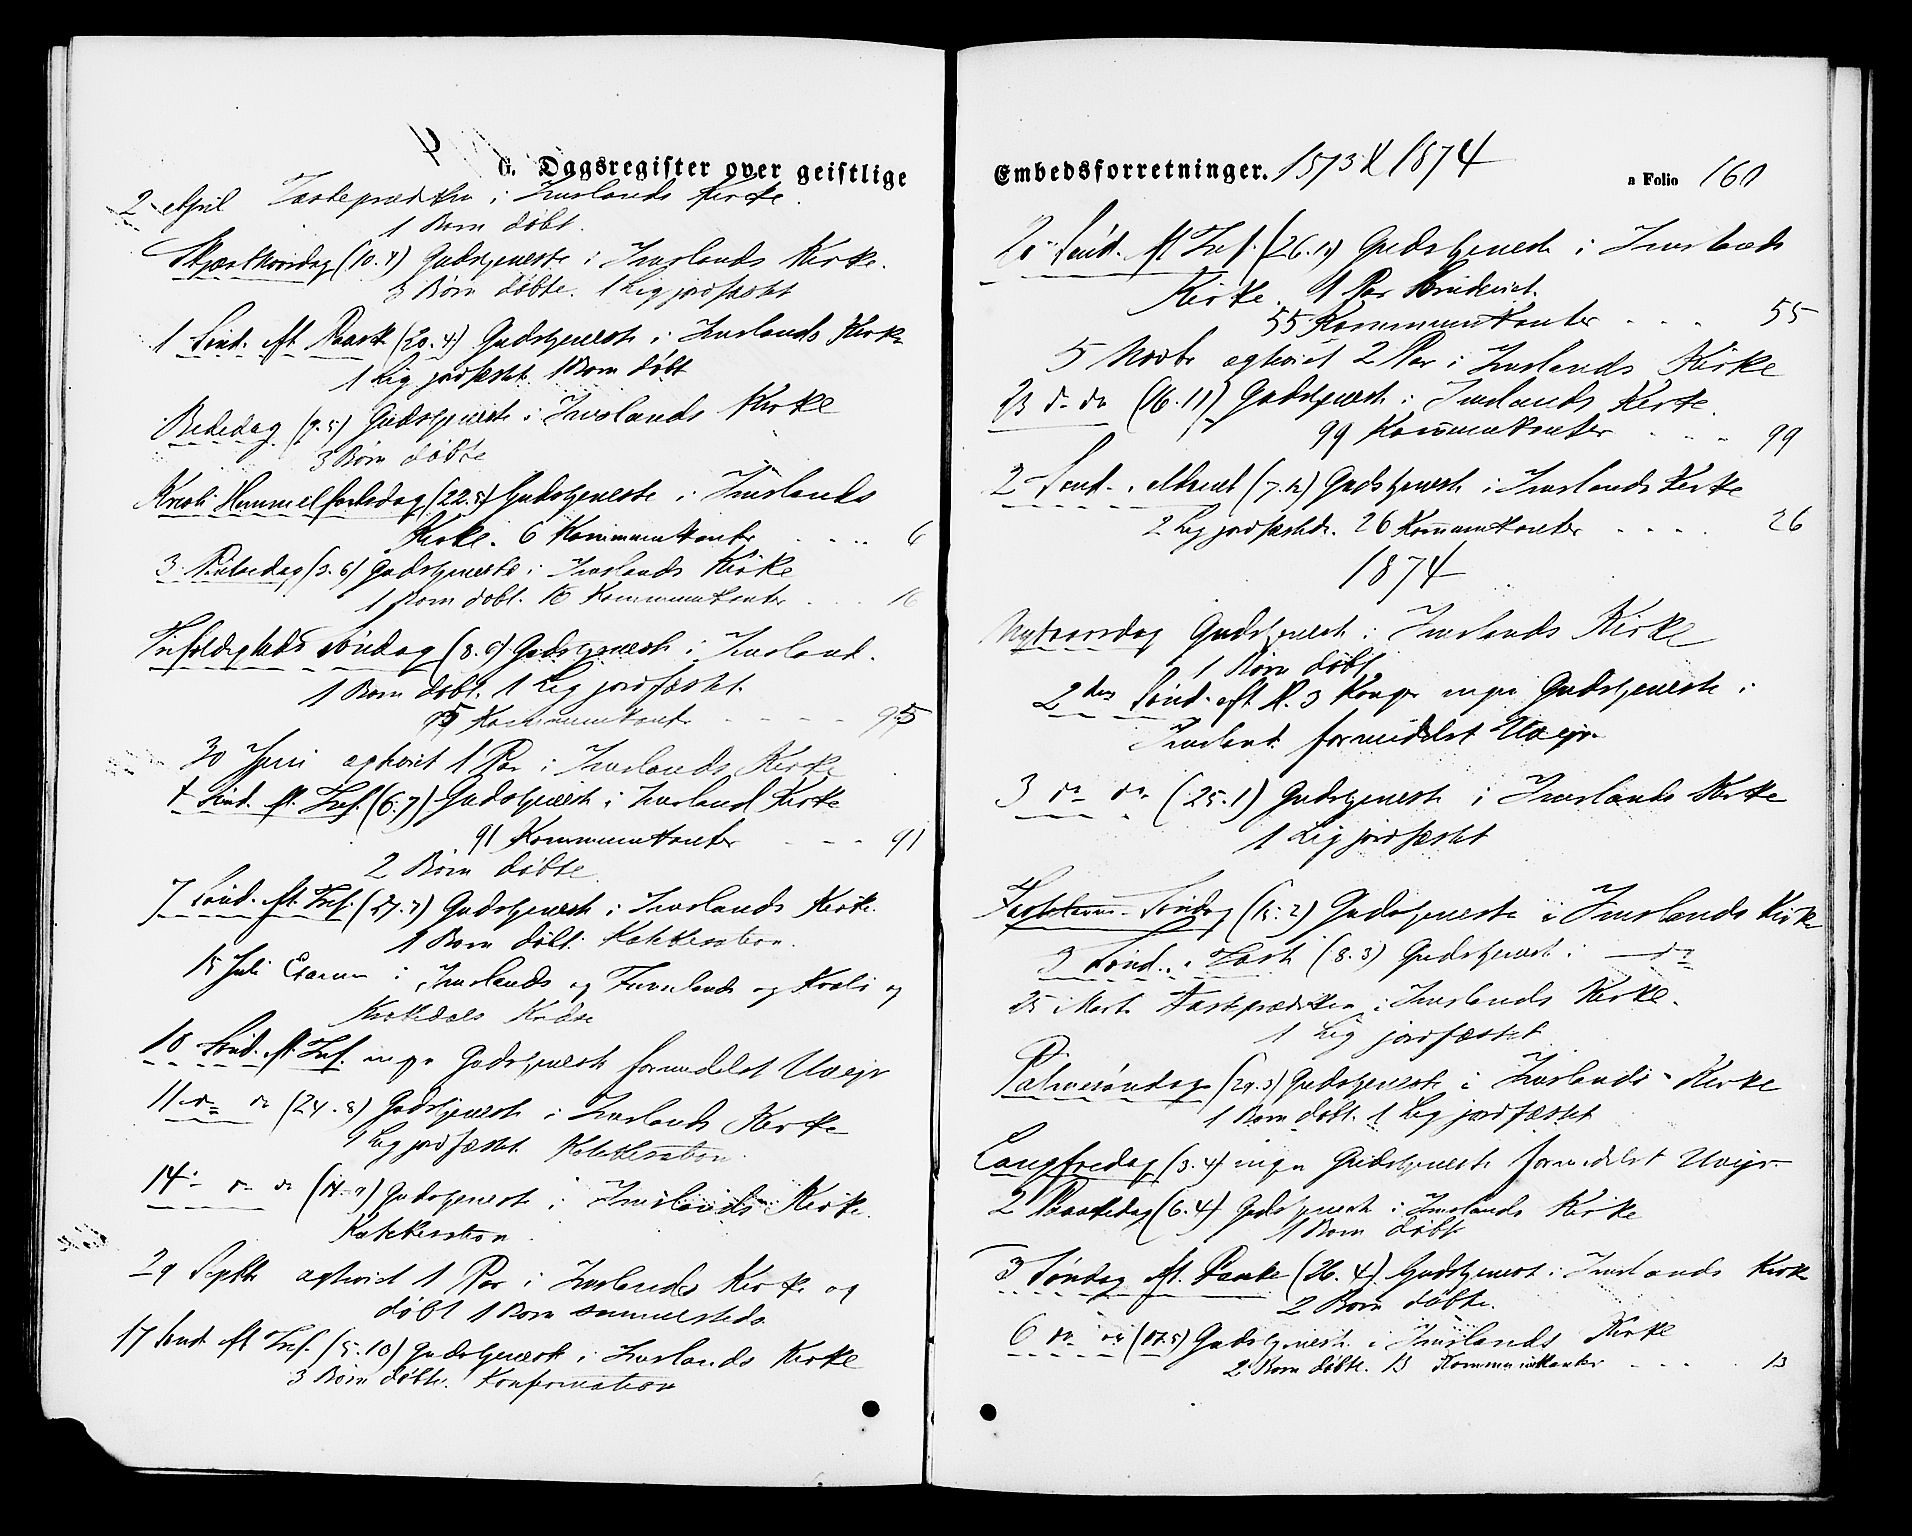 G. Dagsregister over geistlige
2 April Fasteprædiken i Iveslands Kirke.
1 Barn døbt.
Skjærthorsdag (10.4) Gudstjeneste i Iveslands Kirke.
3 Børn døbte. 1 Lig jordfæstet
1 Sønd. eft. Paask (20.4) Gudstjeneste i Iveslands Kirke
1 Lig jordfæstet 1 Barn døbt
Bededag (9.5) Gudstjeneste i Iveslands Kirke
3 Børn døbte
Kristi Himmelfartsdag (22.5) Gudstjeneste i Iveslands
Kirke. 6 Kommunikanter 6
3 Pintsedag (3.6) Gudstjeneste i Iveslands Kirke
1 Barn døbt. 16 Kommunikanter 16
Trefoldigheds Søndag (8.6) Gudstjeneste i Ivesland.
1 Barn døbt. 1 Lig jordfæstet.
95 Kommunikanter 95
30 Juni egteviet 1 Par i Iveslands Kirke
4 Sønd. eft. Tref. (6.7) Gudstjeneste i Ivesland Kirke
91 Kommunikanter 91
2 Børn døbte.
7 Sønd. eft. Tref. (27.7) Gudstjeneste i Iveslands Kirke.
1 Barn døbt. Katekisation.
15 Juli Examen i Iveslands og og og
Kredse
10 Sønd. eft. Tref. ingen Gudstjeneste formedelst Uveir
11 do do (24.8) Gudstjeneste i Iveslands Kirke
1 Lig jordfæstet Katekisation.
14 do do (14.9) Gudstjeneste i Iveslands Kirke.
Katekisation.
29 Septbr egteviet 1 Par i Iveslands Kirke og
døbt 1 Barn sammesteds
17 Sønd. eft. Tref. (5.10) Gudstjeneste i Iveslands Kirke
3 Børn døbte. Konfirmation
Embedsforretninger. 1873 & 1874
a Folio 160
20 Sønd. eft. Tref. (26.10) Gudstjeneste i Iveslands
Kirke. 1 Par
55 Kommunikanter 55
5 Novbr egteviet 2 Par i Iveslands Kirke
23 do do (16.11) Gudstjeneste i Iveslands Kirke.
99 Kommunikanter 99
2 Sønd. i Advent (7.12) Gudstjeneste i Iveslands Kirke
2 Lig jordfæstede. 26 Kommunikanter 26
1874
Nytaarsdag Gudstjeneste i Iveslands Kirke
1 Barn døbt
2den Sønd. eft. H. 3 Konger ingen Gudstjeneste i
Ivesland formedelst Uveir
3 do do (25.1) Gudstjeneste i Iveslands Kirke
1 Lig jordfæstet
Fastelavns-Søndag (15.2) Gudstjeneste i Iveslands Kirke
3 Sønd. i Faste (8.3) Gudstjeneste i do
25 Marts Fasteprædiken i Iveslands Kirke.
1 Lig jordfæstet
Palmesøndag (29.3) Gudstjeneste i Iveslands Kirke
1 Barn døbt. 1 Lig jordfæstet
Langfredag (3.4) ingen Gudstjeneste formedelst Uveir
2 Paaskedag (6.4) Gudstjeneste i Iveslands Kirke
1 Barn døbt
3 Søndag eft. Paaske (26.4) Gudstjeneste i Iveslands Kirke
2 Børn døbte.
6 do do (17.5) Gudstjeneste i Iveslands Kirke
2 Børn døbte. 13 Kommunikanter 13